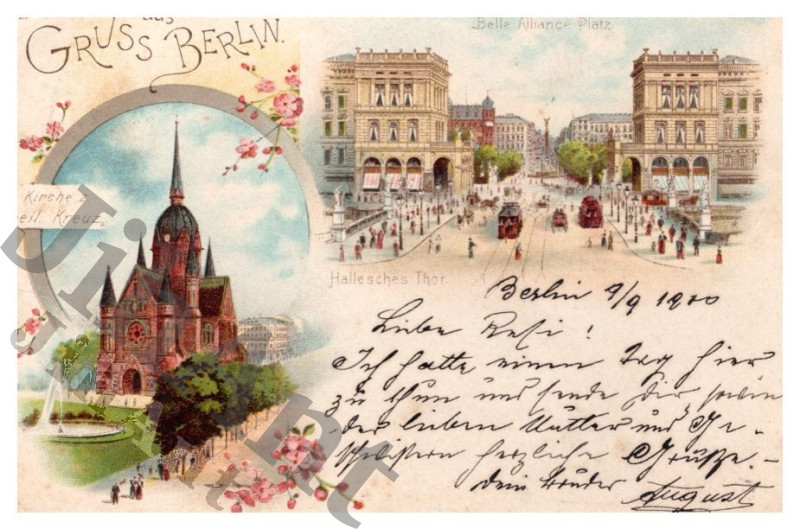 aus
GRUSS BERLIN.
Belle Alliance Platz
Kirche z.
heil. Kreuz.
Hallesches Thor.
Berlin 4/9 1900
Liebe Resi!
Ich hatte einen Tag hier
zu thun und sende dir, sowie
der lieben Mutter und Ge-
schwistern herzliche Grüße.-
dein Bruder August